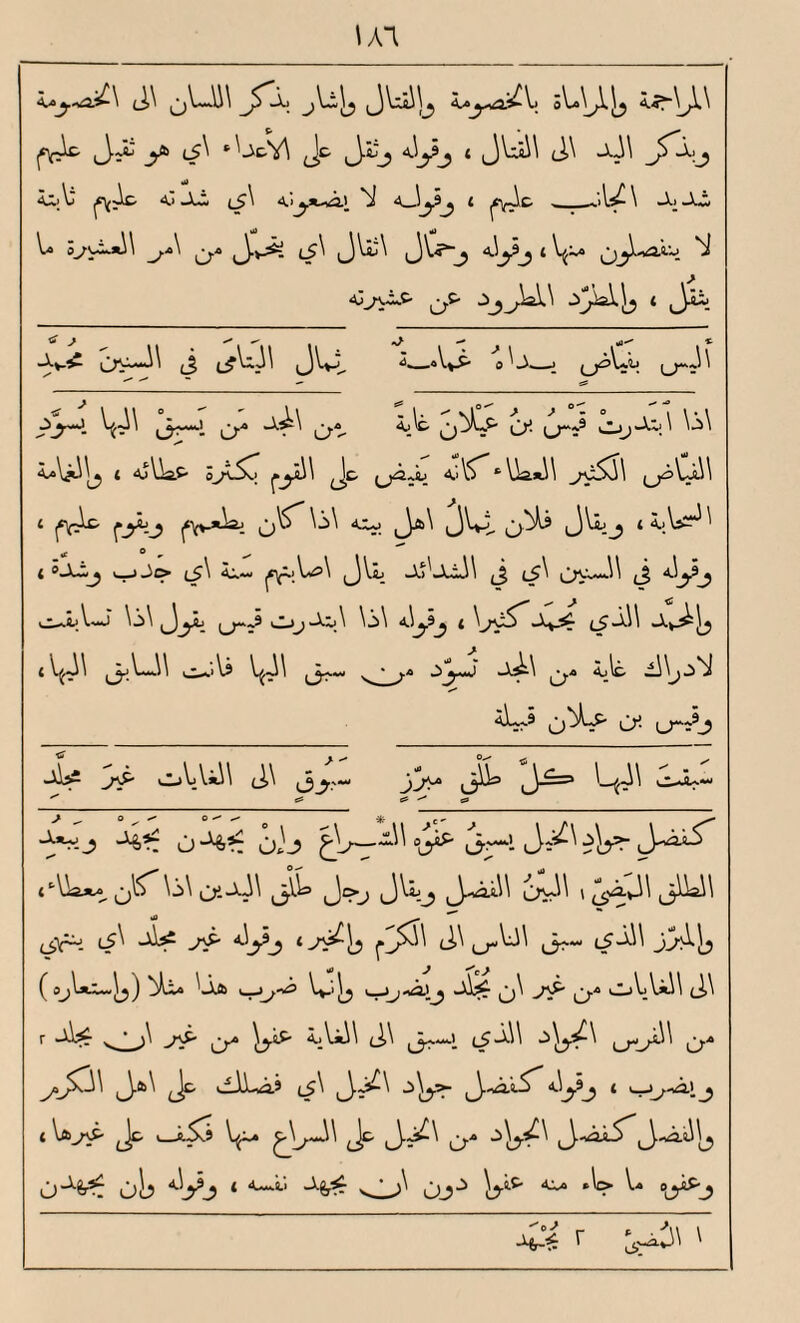 ١٨٦
المراجمة والمراماة بالخصومة والقتال واشار بذكر اللسان الى الخصومة
وبذكر اليد الى القتال ، وقوله وثقل على الاعداء اى هو ثقيل عليهم
شديد الجانب عليهم ، وقوله لا يضعونه اى شدته عليهم باقية
لا يتفصون منها ، وقوله وحمال اثقال اى يحمل من امر العشيرة ما
يثقل ، والمطرد المطرود عن عشيرته
أليس بفياض يداه غمامة ثمال اليتامى فى السنين محمد
اذا ابتدرت قيس بن عيلان غاية من المجد من يسبق اليها يسود
الفياض الكثير العطاء كانه يفيض على القوم بكثرة عطائه ، والغمامة
السحابة ، ويقال فلان ثمال اهل بيته اذا كان يطعمهم ويقوم عليهم ،
وقوله فى السنين اى فى الشدائد يقال اصابتهم سنة اى جدب وشدة ،
والمحمد الذى يحمد كثيرا ، وقوله اذا ابتدرت قيس يقول اذا تسابقت
لادراك غاية من المجد تسود من سبق اليها فانت السابق اليها ،
وقيس بن عيلان قبيلة
سبقت اليها كل طلق مبرز سبوق الى الغايات غير مجلد
كفضل جواد الخيل يسبق عفوه السراع وان يجهدن يجهد ويبعد
الطلق ١ البين الفضل ويقال رجل طلق اليدين اذا كان معطاء ،
والمبرز الذى سبق الناس الى الكرم والخير ، وقوله غير مجلد اى ينتهى
الى الغايات من غير ان يجلد ويضرب وانما ضرب هذا مثلا (واستعاره)
من الفرس الجواد الذى يسبق الى الغاية عفوا من غير ان يجلد ٢
ويضرب ، وقوله كفضل جواد الخيل اى فضلك على اهل الكرم
والفضل كفضل الجواد من الخيل على السراع منها فكيف على غيرها ،
وعفوه ما جاء منه عفوا دون ان يجهد نفسه ، وقوله وان يجهدن
١ المضىء ٢ يجهد